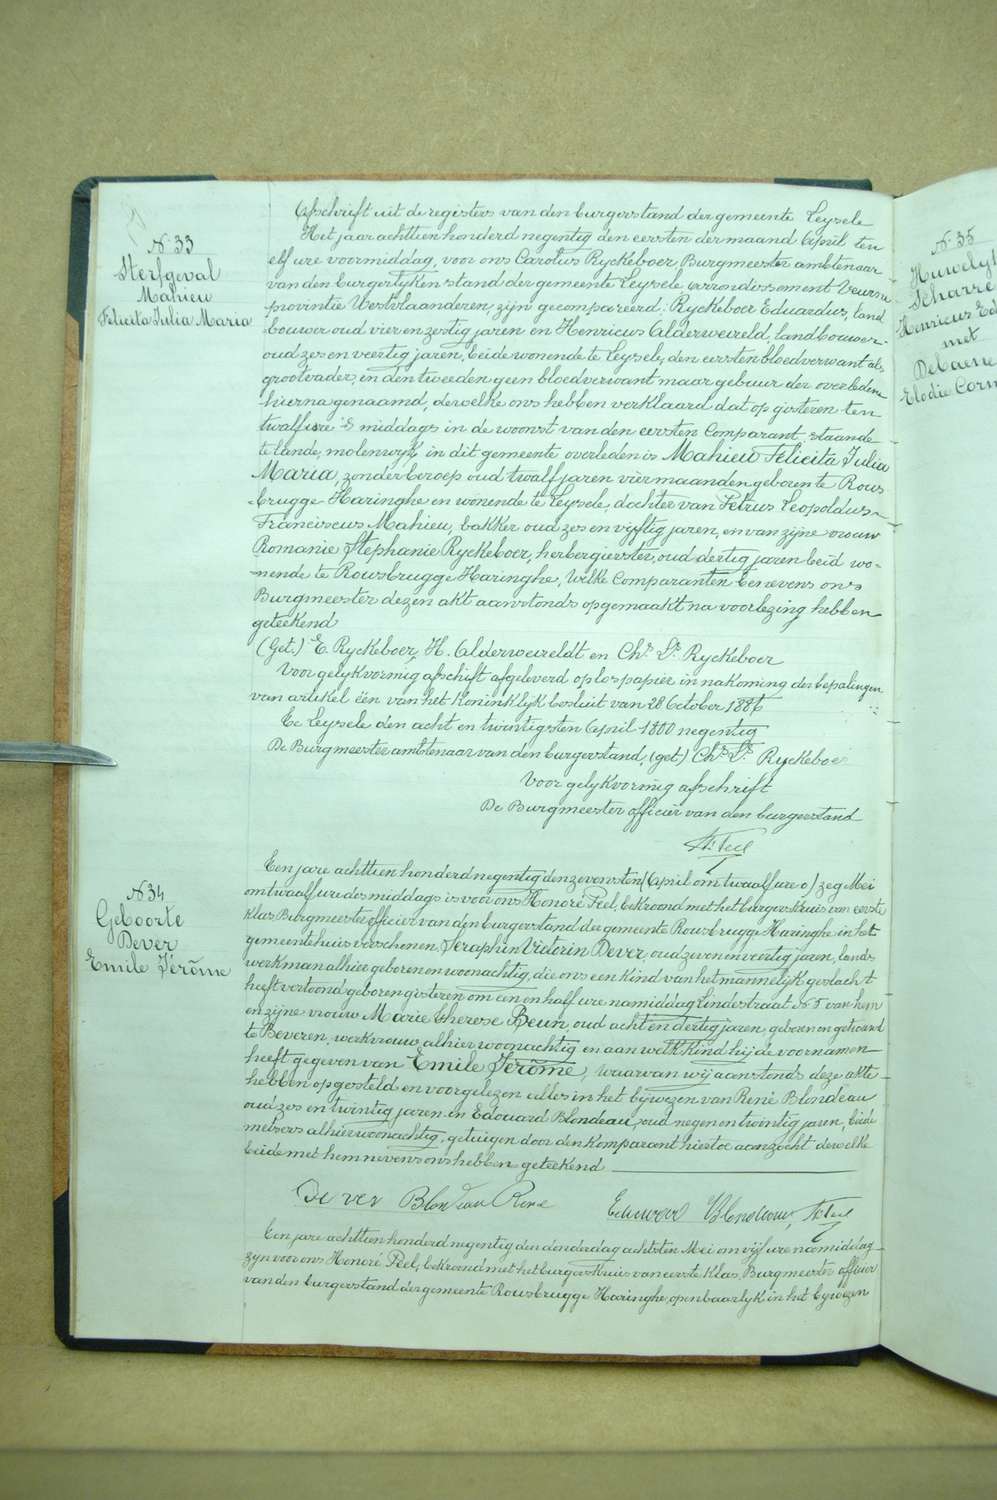 N. 33
Sterfgeval
Mahieu
Felicita Julia Maria
Afschrift uit de registers van den burgerstand der gemeente Leysele
Het jaar achttien honderd negentig den eersten der maand April ten
elf ure voormiddag, voor ons Carolus Ryckeboer Burgmeester ambtenaar
van den burgerlyken stand der gemeente Leysele arrondissement Veurne
provintie Westvlaanderen, zijn gecompareerd: Ryckeboer Eduardus, land
bouwer oud vier en zestig jaren en Henricus Alderweireld, landbouwer
oud zes en veertig jaren, beide wonende te Leysele, den eersten bloedverwant als
grootvader, en den tweeden geen bloedverwant maar gebuur der overledene
hierna genaamd, derwelke ons hebben verklaard dat op gisteren ten
twalf ure 's middags in de woonst van den eersten Comparant, staande
te lande, molenwyk in dit gemeente overleden is Mahieu Felicita Julia
Maria, zonder beroep oud twalf jaren vier maanden geboren te Rous
brugge-Haringhe en wonende te Leysele, dochter van Petrus Leopoldus
Franciscus Mahieu, bakker oud zes en vyftig jaren, en van zijne vrouw
Romanie Stephanie Ryckeboer, herbergierster, oud dertig jaren beid wo-
nende te Rousbrugge Haringhe, Welke Comparanten benevens ons
Burgmeester dezen akt aanstonds opgemaakt na voorlezing hebben
geteekend
(Get.) E. Ryckeboer, H. Alderweireldt en Chs. Ls. Ryckeboer
Voor gelykvormig afschift afgeleverd op los papier in nakoming der bepalingen
van artikel één van het Koninklijk besluit van 28 October 1886
Te Leysele den acht en twintigsten April 1800 negentig
De Burgmeester ambtenaar van den burgerstand, (get) Chs. Ls. Ryckeboer
Voor gelykvormig afschrift
De Burgmeester officier van den burgerstand
H. Peel
N 34
Geboorte
Dever
Emile Jérôme
Een jare achttien honderd negentig den zevensten (April om twaalf ure o) zeg Mei
om twaalf ure des middags is voor ons Honoré Peel, bekroond met het burgerskruis van eerste
klas Burgmeester officier van den burgerstand der gemeente Rousbrugge Haringhe in het
gemeentehuis verschenen Seraphin Victorin Dever, oud zeven en veertig jaren, lands
werkman alhier geboren en woonachtig, die ons een kind van het mannelijk geslacht
heeft vertoond geboren gisteren om een en half ure namiddag Lindestraat N. 5 van hem
en zijne vrouw Marie Therese Beun, oud acht en dertig jaren, geboren en getrouwd
te Beveren, werkvrouw, alhier woonachtig en aan welk kind hij de voornamen
heeft gegeven van Emile Jérôme, waarvan wij aanstonds deze akte
hebben opgesteld en voorgelezen alles in het bijwezen van René Blondeau
oud zes en twintig jaren en Edouard Blondeau, oud negen en twintig jaren, beide
metsers alhier woonachtig, getuigen door den komparant hiertoe aanzocht derwelke
beide met hem nevens ons hebben geteekend
De ver Blondeau René Eduward Blondeau, H. Peel
Een jare achttien honderd negentig den donderdag achtsten Mei om vijf ure namiddag
zyn voor ons Honoré Peel, bekroond met het burgerskruis van eerste klas, Burgmeester officier
van den burgerstand der gemeente Rousbrugge Haringhe, openbaarlyk in het bywezen
N. 35
Huwelyk
Scharre
Henricus Ed
met
Debaene
Elodie Corn